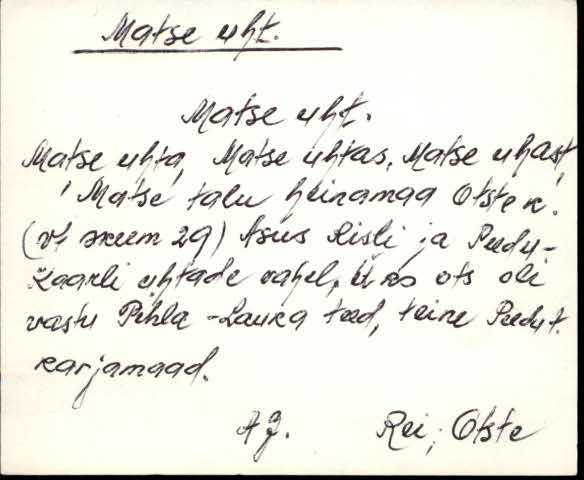 Matse uht.
Matse uht.
Matse uhta, Matse uhtas, Matse uhast,
Matse talu heinamaa Otste k.
(vt skeem 29) Asus Risti ja Peedu-
Kaarli uhtade vahel, üks ots oli
vastu Pihla-Lauka teed, teine Peedu t.
karjamaad.
AJ. Rei, Otste